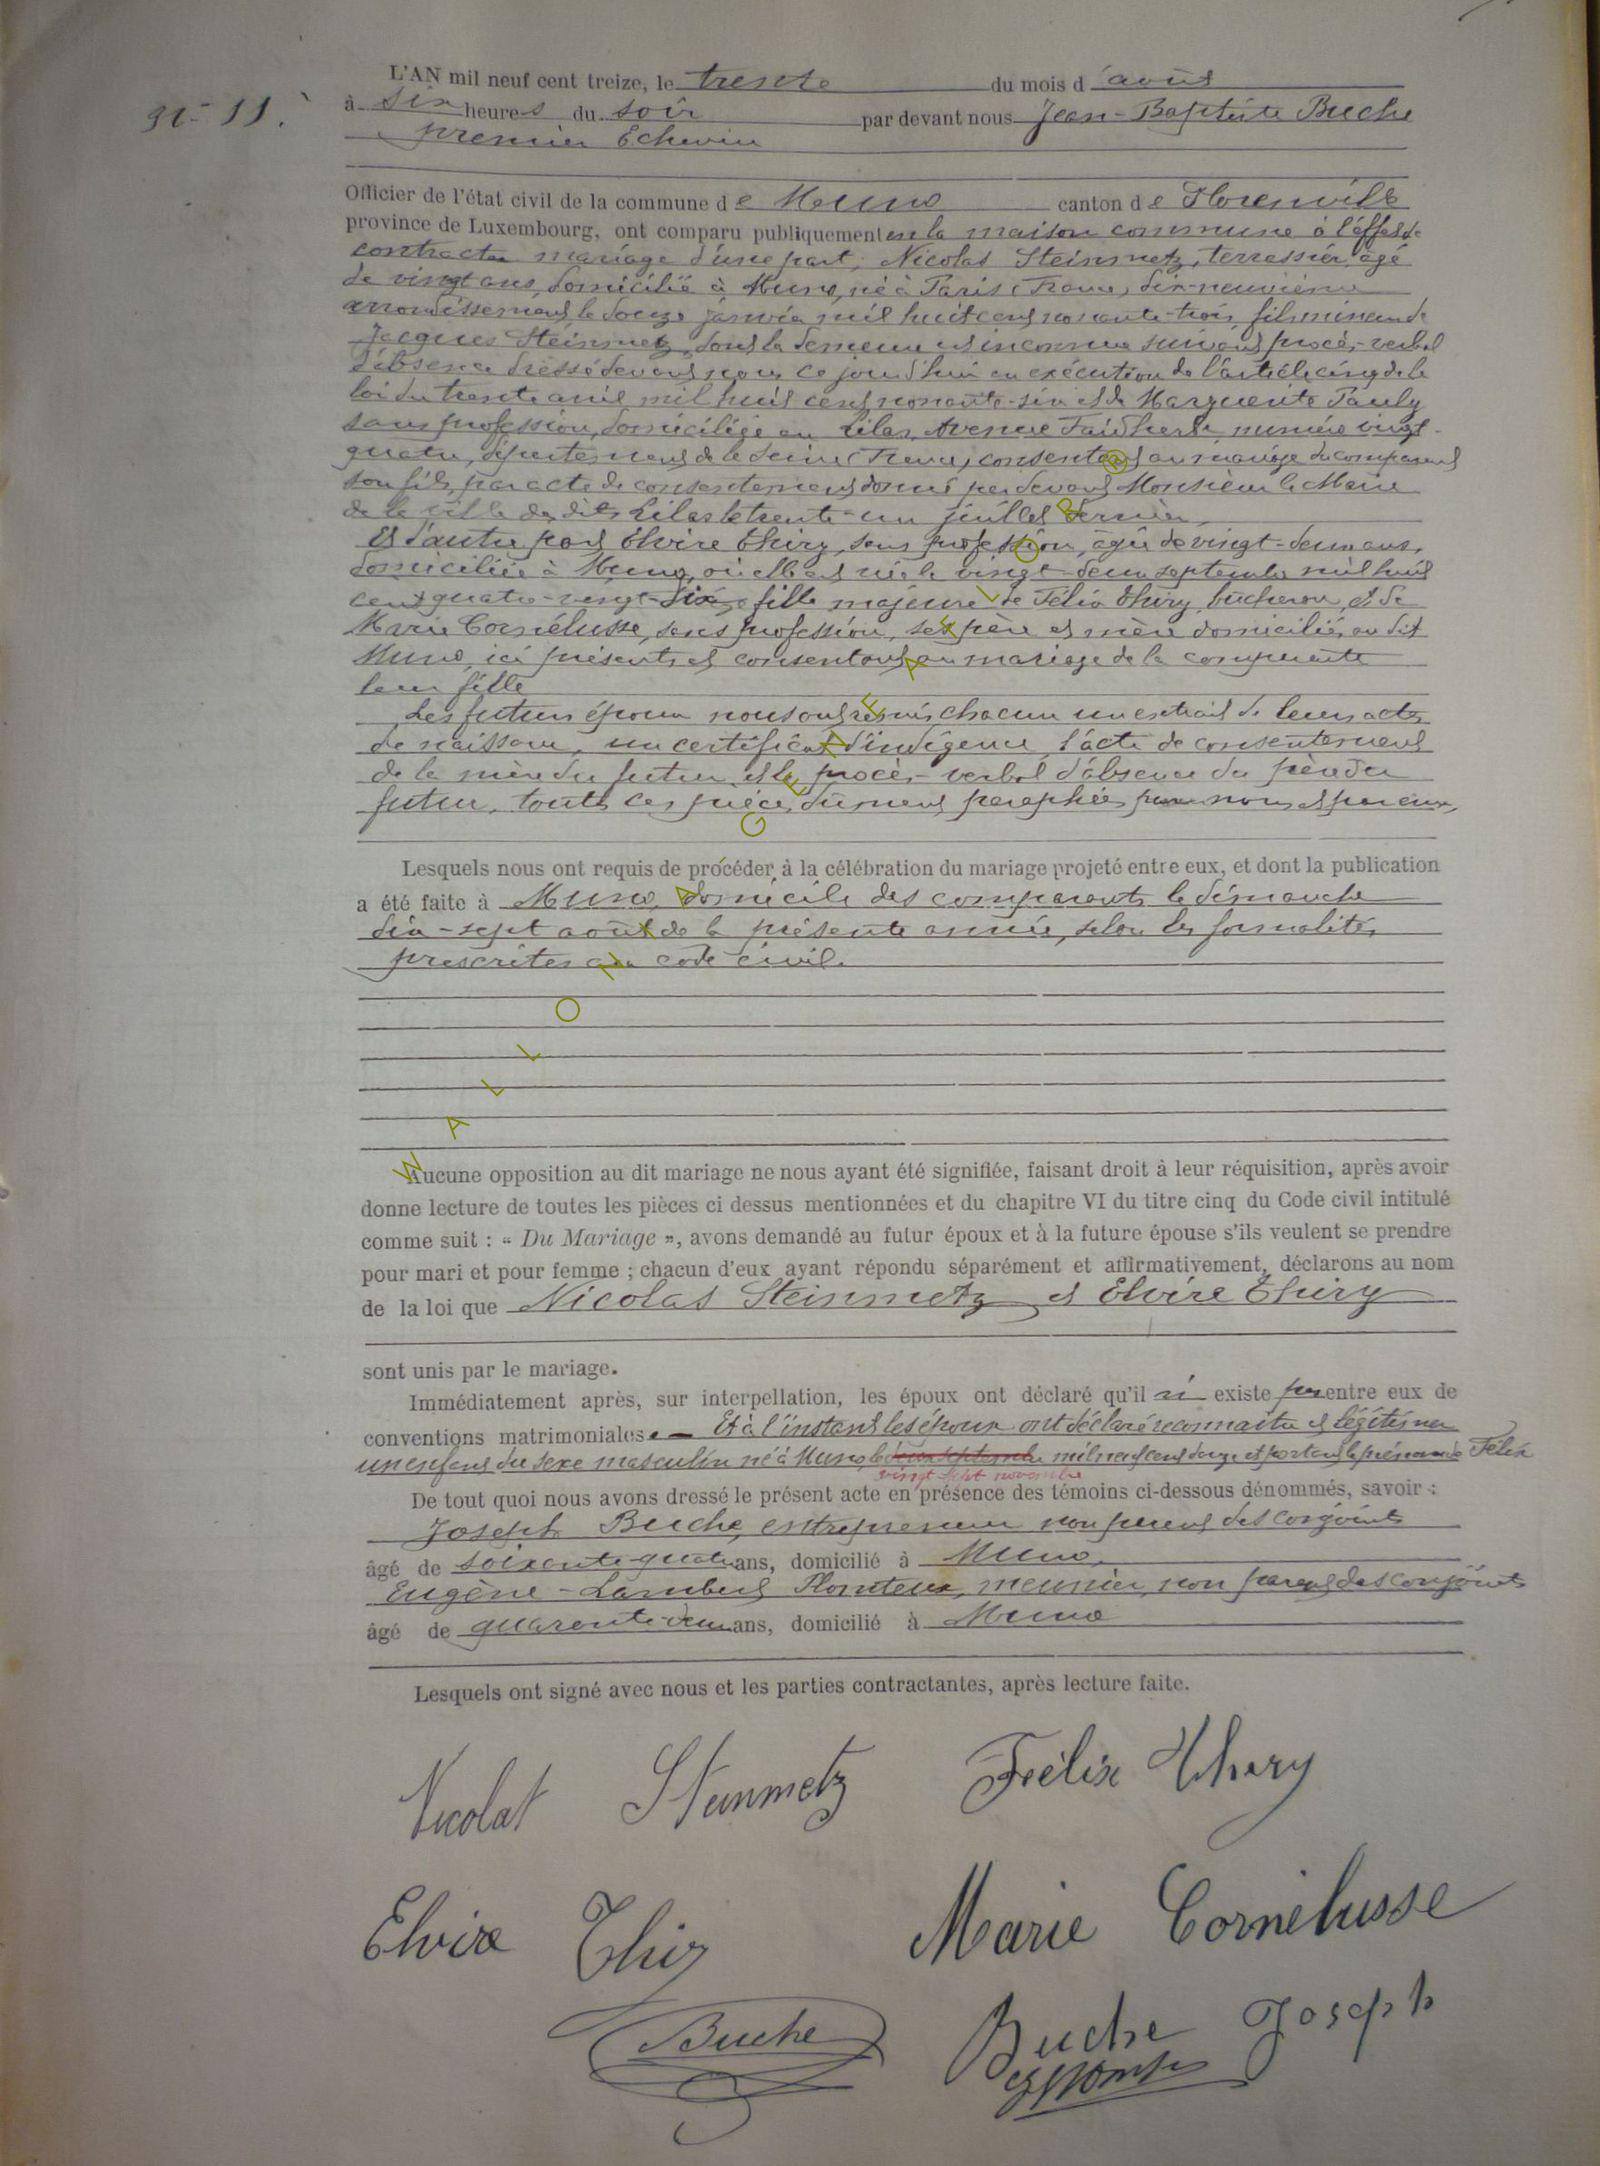 L'AN mil neuf cent treize, le trente du mois d'août
N° 11.
à six heures du soir par devant nous Jean-Baptiste Buche
premier Echevin
Officier de l'état civil de la commune de Muno canton de Florenville
province de Luxembourg, ont comparu publiquement en la maison commune à l'effet de
contracter mariage d'une part, Nicolas Steinmetz, terrassier, âgé
de vingt ans, domicilié à Muno, né à Paris (France) dix-neuvième
arrondissement le douze janvier mil huit cent nonante-trois, fils mineur de
Jacques Steinmetz, dont la demeure est inconnue suivant procès-verbal
d'absence dressé devant nous ce jourd'hui en exécution de l'article cinq de la
loi du trente avril mil huit cent nonante-six et de Marguerite Pauly
sans profession, domiciliée au Lilas, Avenue Faidherbe, numéro vingt-
quatre, département de la Seine (France) consentant au mariage du comparant
son fils, par acte de consentement donné par devant Monsieur le Maire
de la ville des dits Lilas le trente-un juillet dernier.
Et d'autre part Elvire Thiry, sans profession, âgée de vingt-deux ans,
domiciliée à Muno, où elle est née le vingt-deux septembre mil huit
cent quatre-vingt-dix, fille majeure de Félix Thiry, bûcheron, et de
Marie Cornélusse, sans profession, ses père et mère domiciliés au dit
Muno, ici présents et consentant au mariage de la comparante
leur fille
Les futurs époux nous ont remis chacun un extrait de leurs actes
de naissance, un certificat d'indigence, l'acte de consentement
de la mère du futur et le procès-verbal d'absence du père du
futur, toutes ces pièces dûment paraphées par nous et par eux,
Lesquels nous ont requis de procéder à la célébration du mariage projeté entre eux, et dont la publication
a été faite à Muno, domicile des comparants le dimanche
dix-sept août de la présente année, selon les formalités
prescrites au code civil.
WALLONIA GENEALOGIE
Aucune opposition au dit mariage ne nous ayant été signifiée, faisant droit à leur réquisition, après avoir
donne lecture de toutes les pièces ci dessus mentionnées et du chapitre VI du titre cinq du Code civil intitulé
comme suit : « Du Mariage », avons demandé au futur époux et à la future épouse s'ils veulent se prendre
pour mari et pour femme ; chacun d'eux ayant répondu séparément et affirmativement, déclarons au nom
de la loi que Nicolas Steinmetz et Elvire Thiry
sont unis par le mariage.
Immédiatement après, sur interpellation, les époux ont déclaré qu'il n'existe pas entre eux de
conventions matrimoniales. — Et à l'instant les époux ont déclaré reconnaitre et légitimer
un enfant du sexe masculin né à Muno, le deux septembre mil neuf cent douze et portant le prénom de Félix
vingt sept novembre
De tout quoi nous avons dressé le présent acte en présence des témoins ci-dessous dénommés, savoir :
Joseph Buche, entrepreneur non parent des conjoints
âgé de soixante-quatre ans, domicilié à Muno,
Eugène-Lambert Plomteux, meunier, non parent des conjoints
âgé de quarante-deux ans, domicilié à Muno
Lesquels ont signé avec nous et les parties contractantes, après lecture faite.
Nicolat Steinmetz Félix Thiry
Elvire Thiry Marie Cornélusse
Buche Buche Joseph